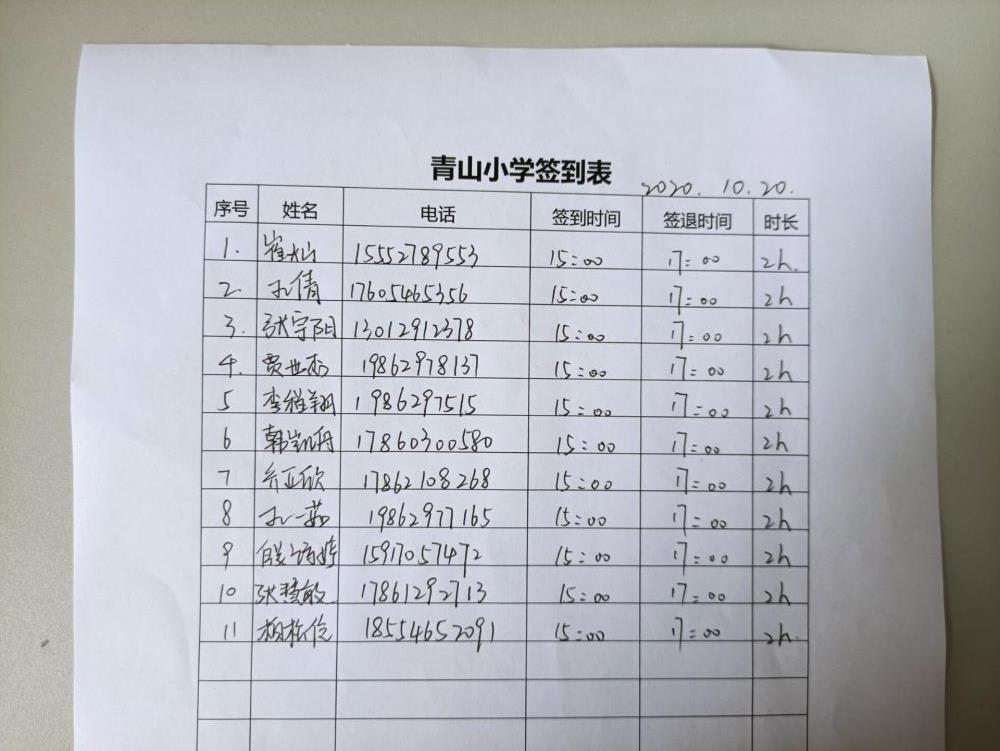 青山小学签到表
2020. 10.20.
序号 姓名 电话 签到时间 签退时间 时长
1. 崔灿 15552789553 15:00 17:00 2h.
2. 孔倩 17605465356 15:00 17:00 2h
3. 张宇阳 13012912378 15:00 17:00 2h
4. 贾世杰 19862978137 15:00 17:00 2h
5 李雅翔 1986297515 15:00 17:00 2h
6 韩凯舟 17860300580 15:00 17:00 2h
7 乔亚欣 17862108268 15:00 17:00 2h
8 孔一茹 19862977165 15:00 17:00 2h
9 15917057472 15:00 17:00 2h
10 张慧敏 17861292713 15:00 17:00 2h
11 18554652091 15:00 17:00 2h.